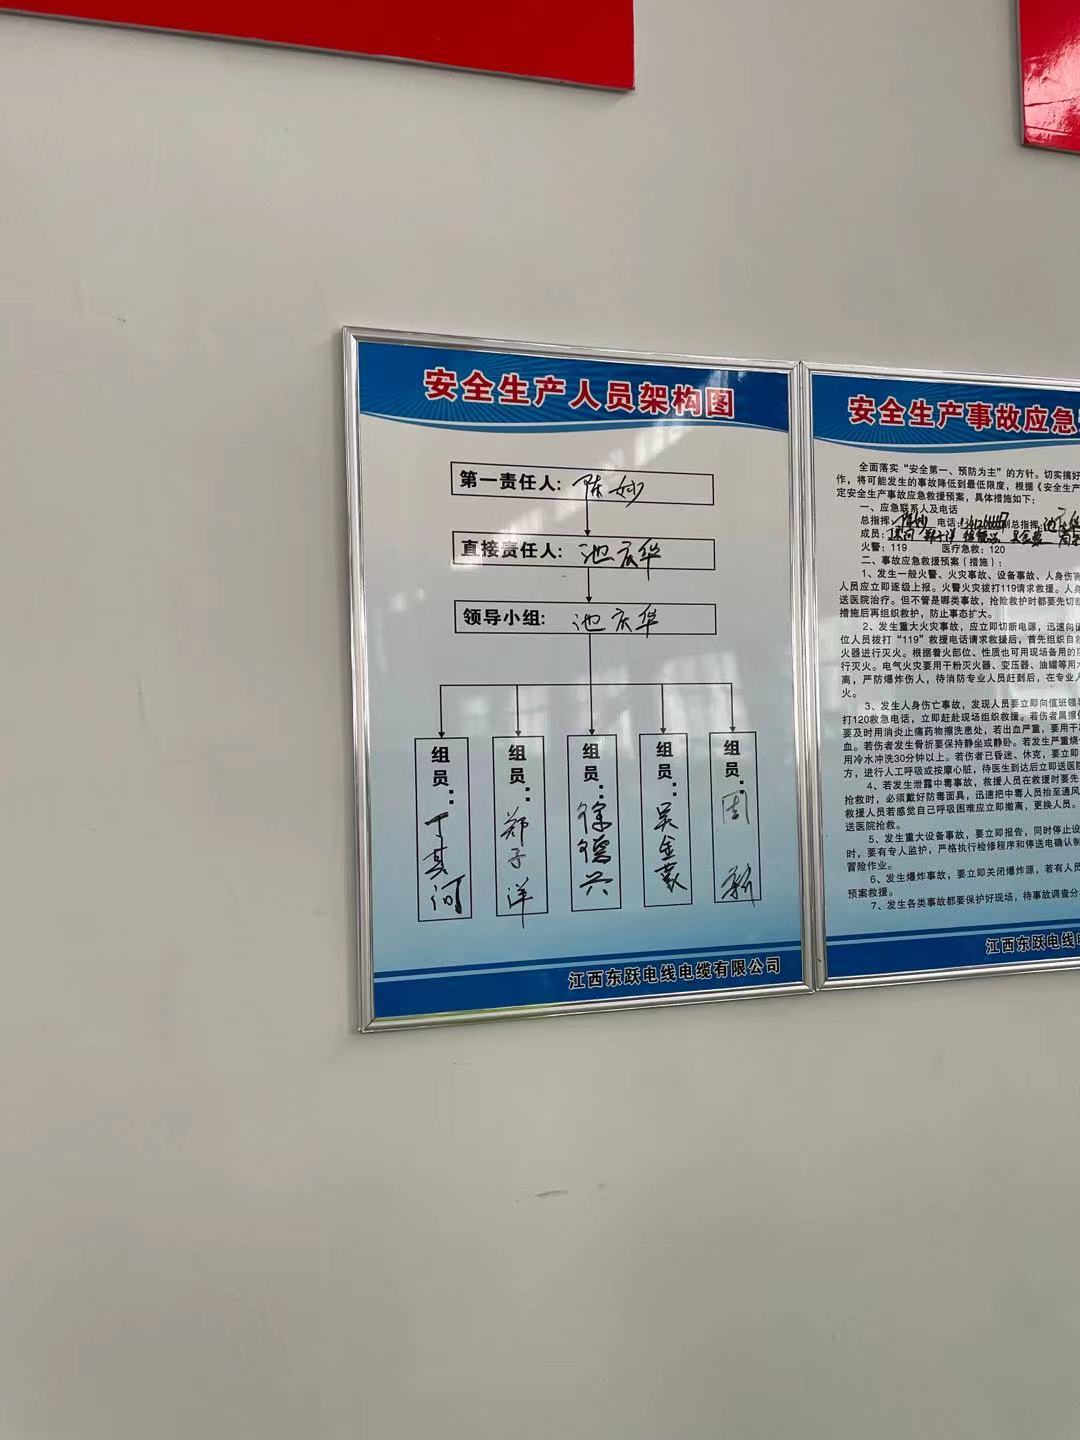 安全生产人员架构图
第一责任人: 陈妙
直接责任人: 池庆华
领导小组: 池庆华
组员: 丁其河
组员: 郑子洋
组员: 徐德兴
组员: 吴金
组员: 周新
江西东跃电线电缆有限公司
安全生产事故应急
全面落实“安全第一、预防为主”的方针。切实搞好
作，将可能发生的事故降低到最低限度，根据《安全生产
定安全生产事故应急救援预案，具体措施如下：
一、应急联系人及电话
总指挥: 陈妙 电话: 副总指挥: 池庆华
成员: 郑子洋
火警：119 医疗急救：120
二、事故应急救援预案（措施）：
1、发生一般火警、火灾事故、设备事故、人身伤害
人员应立即逐级上报。火警火灾拨打119请求救援。人身
送医院治疗。但不管是哪类事故，抢险救护时都要先切断
措施后再组织救护，防止事态扩大。
2、发生重大火灾事故，应立即切断电源，迅速向值
位人员拨打“119”救援电话请求救援后，首先组织自救
火器进行灭火。根据着火部位、性质也可用现场备用的
行灭火。电气火灾要用干粉灭火器、变压器、油罐等用
离，严防爆炸伤人，待消防专业人员赶到后，在专业人
火。
3、发生人身伤亡事故，发现人员要立即向值班领导
打120救急电话，立即赶赴现场组织救援。若伤者属擦
要及时用消炎止痛药物擦洗患处，若出血严重，要用干
血。若伤者发生骨折要保持静坐或静卧。若发生严重烧
用冷水冲洗30分钟以上。若伤者已昏迷、休克，要立即
方，进行人工呼吸或按摩心脏，待医生到达后立即送医院
4、若发生泄露中毒事故，救援人员在救援时要先
抢救时，必须戴好防毒面具，迅速把中毒人员抬至通风
救援人员若感觉自己呼吸困难应立即撤离，更换人员。
送医院抢救。
5、发生重大设备事故，要立即报告，同时停止设
时，要有专人监护，严格执行检修程序和停送电确认制
冒险作业。
6、发生爆炸事故，要立即关闭爆炸源，若有人员
预案救援。
7、发生各类事故都要保护好现场，待事故调查分
江西东跃电线电